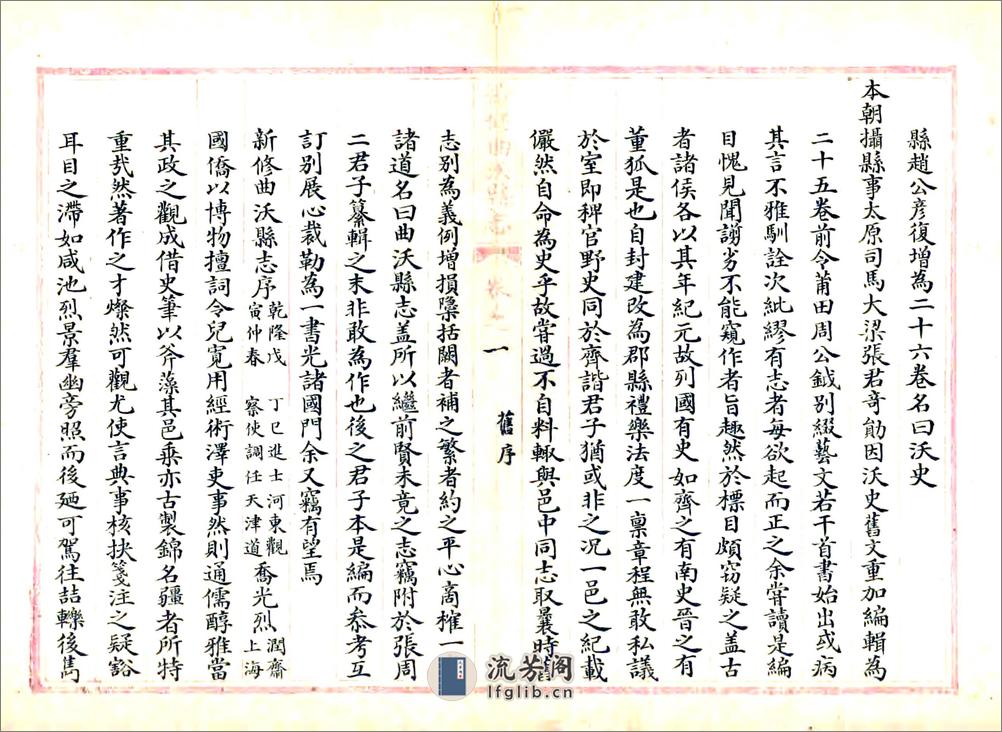 縣趙公彦復增為二十六卷名曰沃史
本朝攝縣事太原司馬大梁張君奇勛因沃史舊文重加編輯為
二十五卷前令莆田周公鉞別綴藝文若干首書始出或病
其言不雅馴詮次紕繆有志者每欲起而正之余嘗讀是編
目愧見聞謭劣不能窺作者旨趣然於標目頗窃疑之盖古
者諸侯各以其年紀元故列國有史如齊之有南史晉之有
董狐是也自封建改為郡縣禮樂法度一禀章程無敢私議
於室即稗官野史同於齊諧君子猶或非之况一邑之紀載
儼然自命為史乎故嘗過不自料輙與邑中同志取曩時舊
一
舊序
志別為義例增損檃括闕者補之繁者約之平心商榷一
諸道名曰曲沃縣志盖所以繼前賢未竟之志竊附於張周
二君子纂輯之末非敢為作也後之君子本是編而叅考互
訂別展心裁勒為一書光諸國門余又竊有望焉
新修曲沃縣志序 乾隆戊寅仲春 丁巳進士河東觀察使調任天津道 喬光烈 潤齋上海
國僑以博物擅詞令兒寬用經術澤吏事然則通儒醇雅當
其政之觀成借史筆以斧藻其邑乘亦古製錦名疆者所特
重㦲然著作之才燦然可觀尤使言典事核抉箋注之疑豁
耳目之滯如咸池烈景羣幽旁照而後廼可駕往喆轢後雋
流芳阁
lfglib.cn